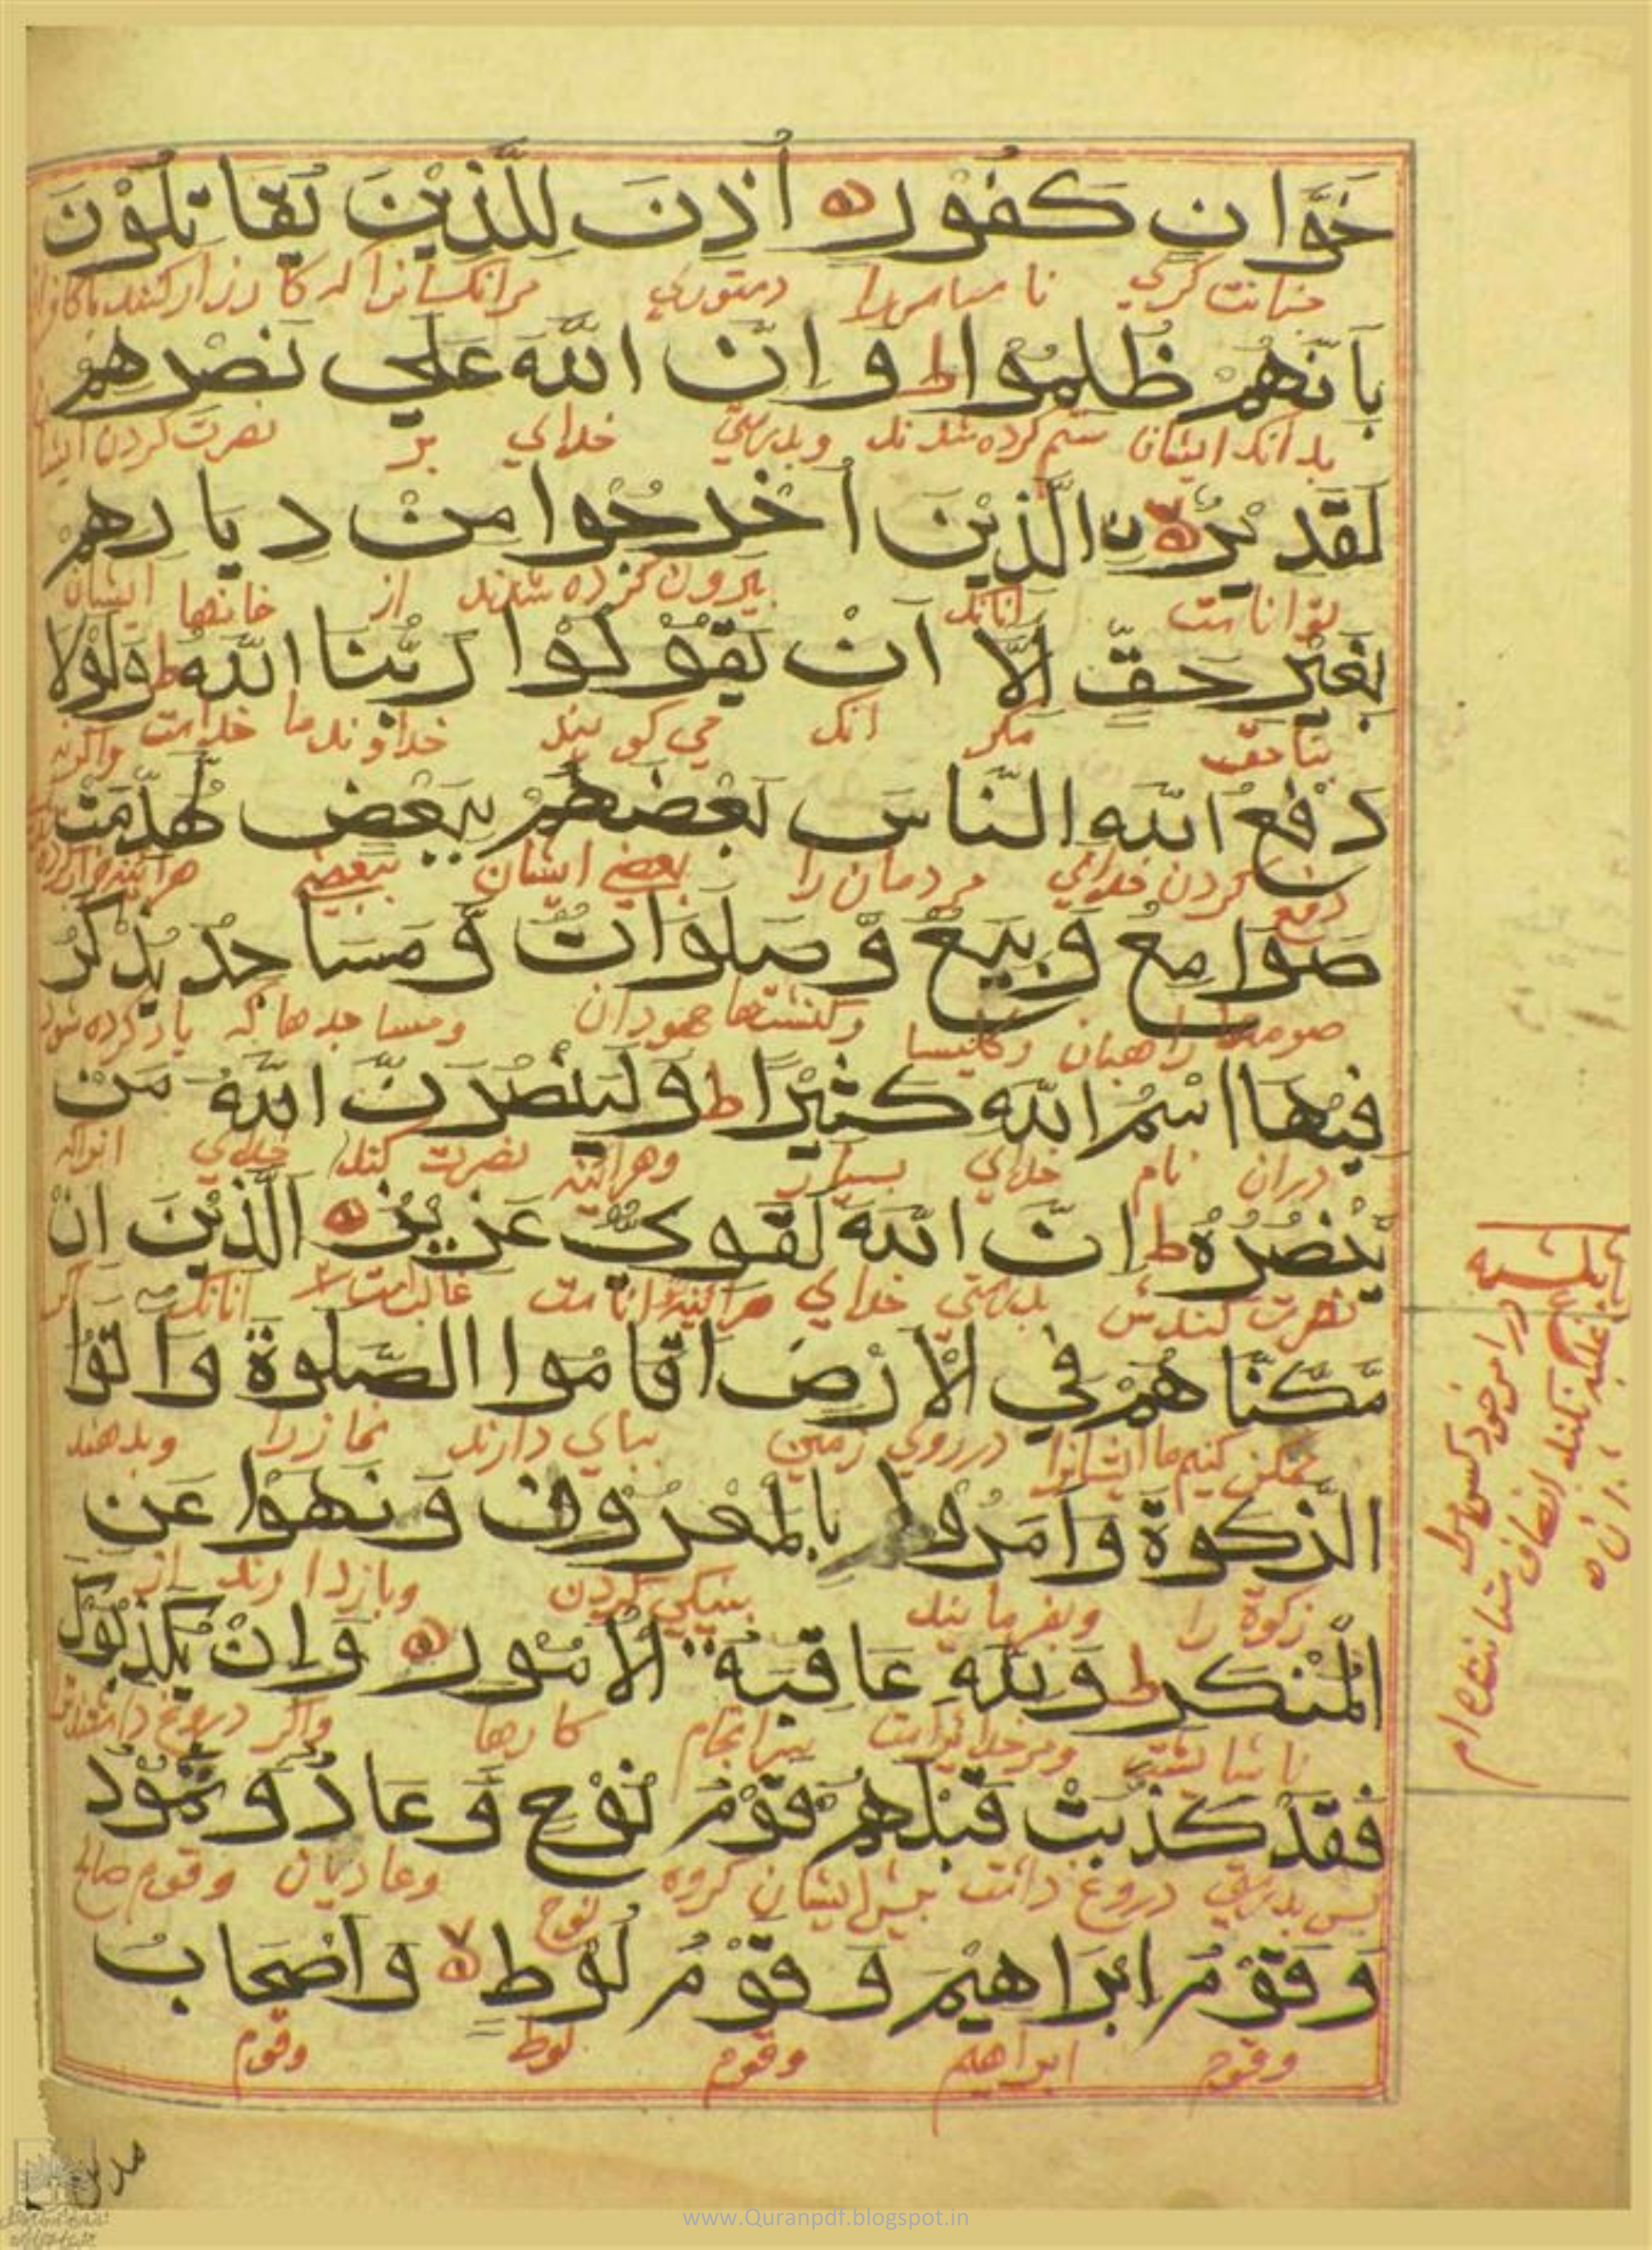 خَوَّانٍ كَفُوْرٍ ه اُذِنَ لِلَّذِيْنَ يُقَاتَلُوْنَ
خيانت كري نا سپاس را دستوري مرانكسانرا كه كارزار كنند با
بِاَنَّهُمْ ظُلِمُوْا ط وَاِنَّ اللّٰهَ عَلٰي نَصْرِهِمْ
بدانكه ايشان ستم كرده شدند وبدرستي خداي بر نصرت كردن
لَقَدِيْرٌ ه لا ن الَّذِيْنَ اُخْرِجُوْا مِنْ دِيَارِهِمْ
توانا ست آنانكه بيرون كرده شدند از خانها ايشان
بِغَيْرِ حَقٍّ اِلَّا اَنْ يَقُوْلُوْا رَبُّنَا اللّٰهُ ط وَلَوْلَا
بناحق مكر انكه مي كويند خداوند ما خداست واكرنه
دَفْعُ اللّٰهِ النَّاسَ بَعْضَهُمْ بِبَعْضٍ لَهُدِّمَتْ
دفع كردن خداي مردمان را بعضي ايشان ببعضي هرآينه
صَوَامِعُ وَبِيَعٌ وَّصَلَوَاتٌ وَّمَسَاجِدُ يُذْكَرُ
صومعها راهبان وكليسا وكنشتها جهودان ومسا جدها كه ياد كرده شود
فِيْهَا اسْمُ اللّٰهِ كَثِيْرًا ط وَلَيَنْصُرَنَّ اللّٰهُ مَنْ
دران نام خداي بسيار وهرآينه نصرت كند خداي انراكه
يَّنْصُرُهُ ط اِنَّ اللّٰهَ لَقَوِيٌّ عَزِيْزٌ ه الَّذِيْنَ اِنْ
نصرت كندش بدرستي خداي هرآينه توانا ست غالبست انانكه اكر
مَّكَّنَّاهُمْ فِي الْاَرْضِ اَقَامُوا الصَّلٰوةَ وَاٰتَوُا
ممكن كنيم ما ايشانرا درروي زمين بپاي دارند نماز را وبدهند
الزَّكٰوةَ وَاَمَرُوْا بِالْمَعْرُوْفِ وَنَهَوْا عَنِ
زكوة را وبفرمايند بنيكي كردن وبازدارند از
الْمُنْكَرِ ط وَلِلّٰهِ عَاقِبَةُ الْاُمُوْرِ ه وَاِنْ يُّكَذِّبُوْكَ
ناشايسته ومر خدايراست سرانجام كارها واكر دروغ داشتند
فَقَدْ كَذَّبَتْ قَبْلَهُمْ قَوْمُ نُوْحٍ وَّعَادٌ وَّثَمُوْدُ
پس بدرستي دروغ داشت پيش ايشان كروه نوح وعاديان وقوم صالح
وَقَوْمُ اِبْرَاهِيْمَ وَقَوْمُ لُوْطٍ لا وَاَصْحَابُ
وقوم ابراهيم وقوم لوط وقوم
مدين
www.Quranpdf.blogspot.in